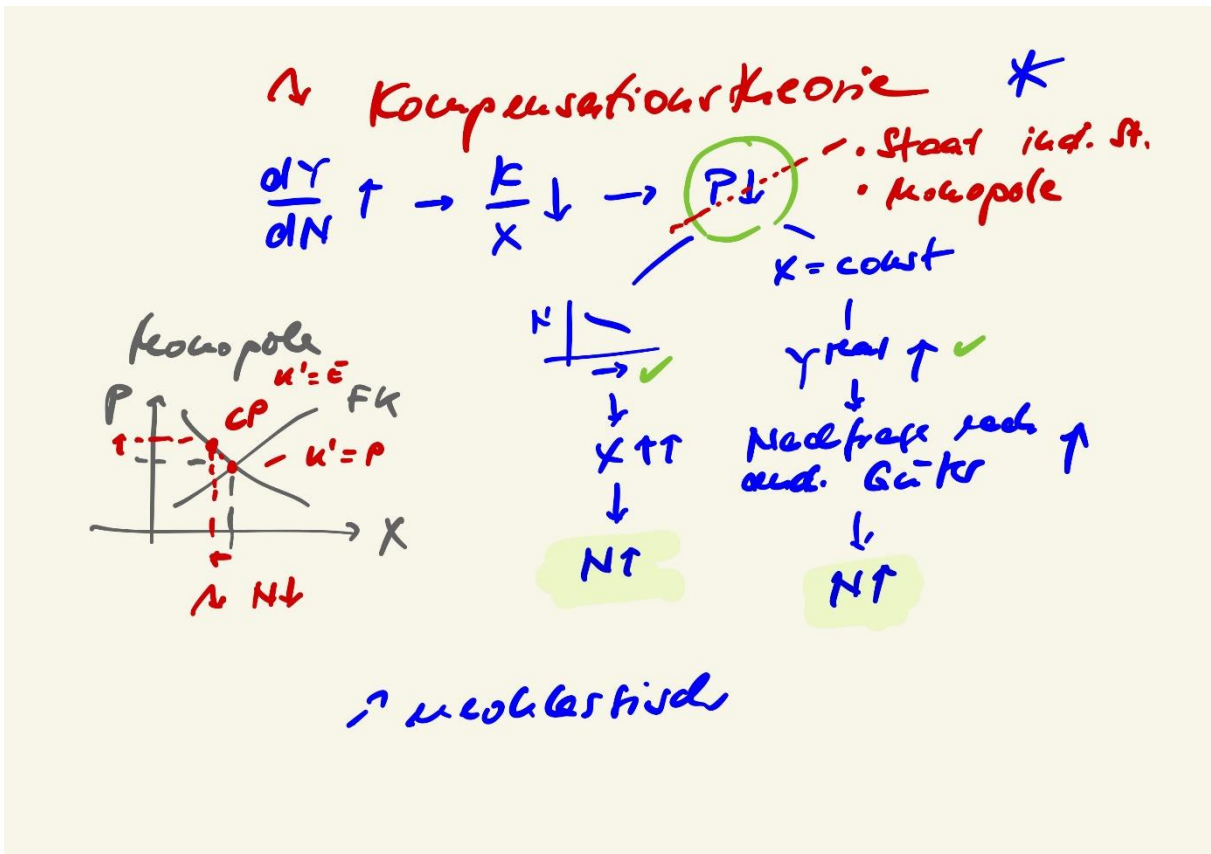 Kompensationstheorie *
dY/dN ↑ → K/X ↓ → P↓
• Staat ind. St.
• Monopole
X = const
N
Y real ↑ ✓
→ ✓
X ↑↑
Nachfrage nach
and. Güter ↑
N↑
N↑
Monopole
K' = E'
P
CP
FK
K' = P
X
N↓
↗ neoklassisch